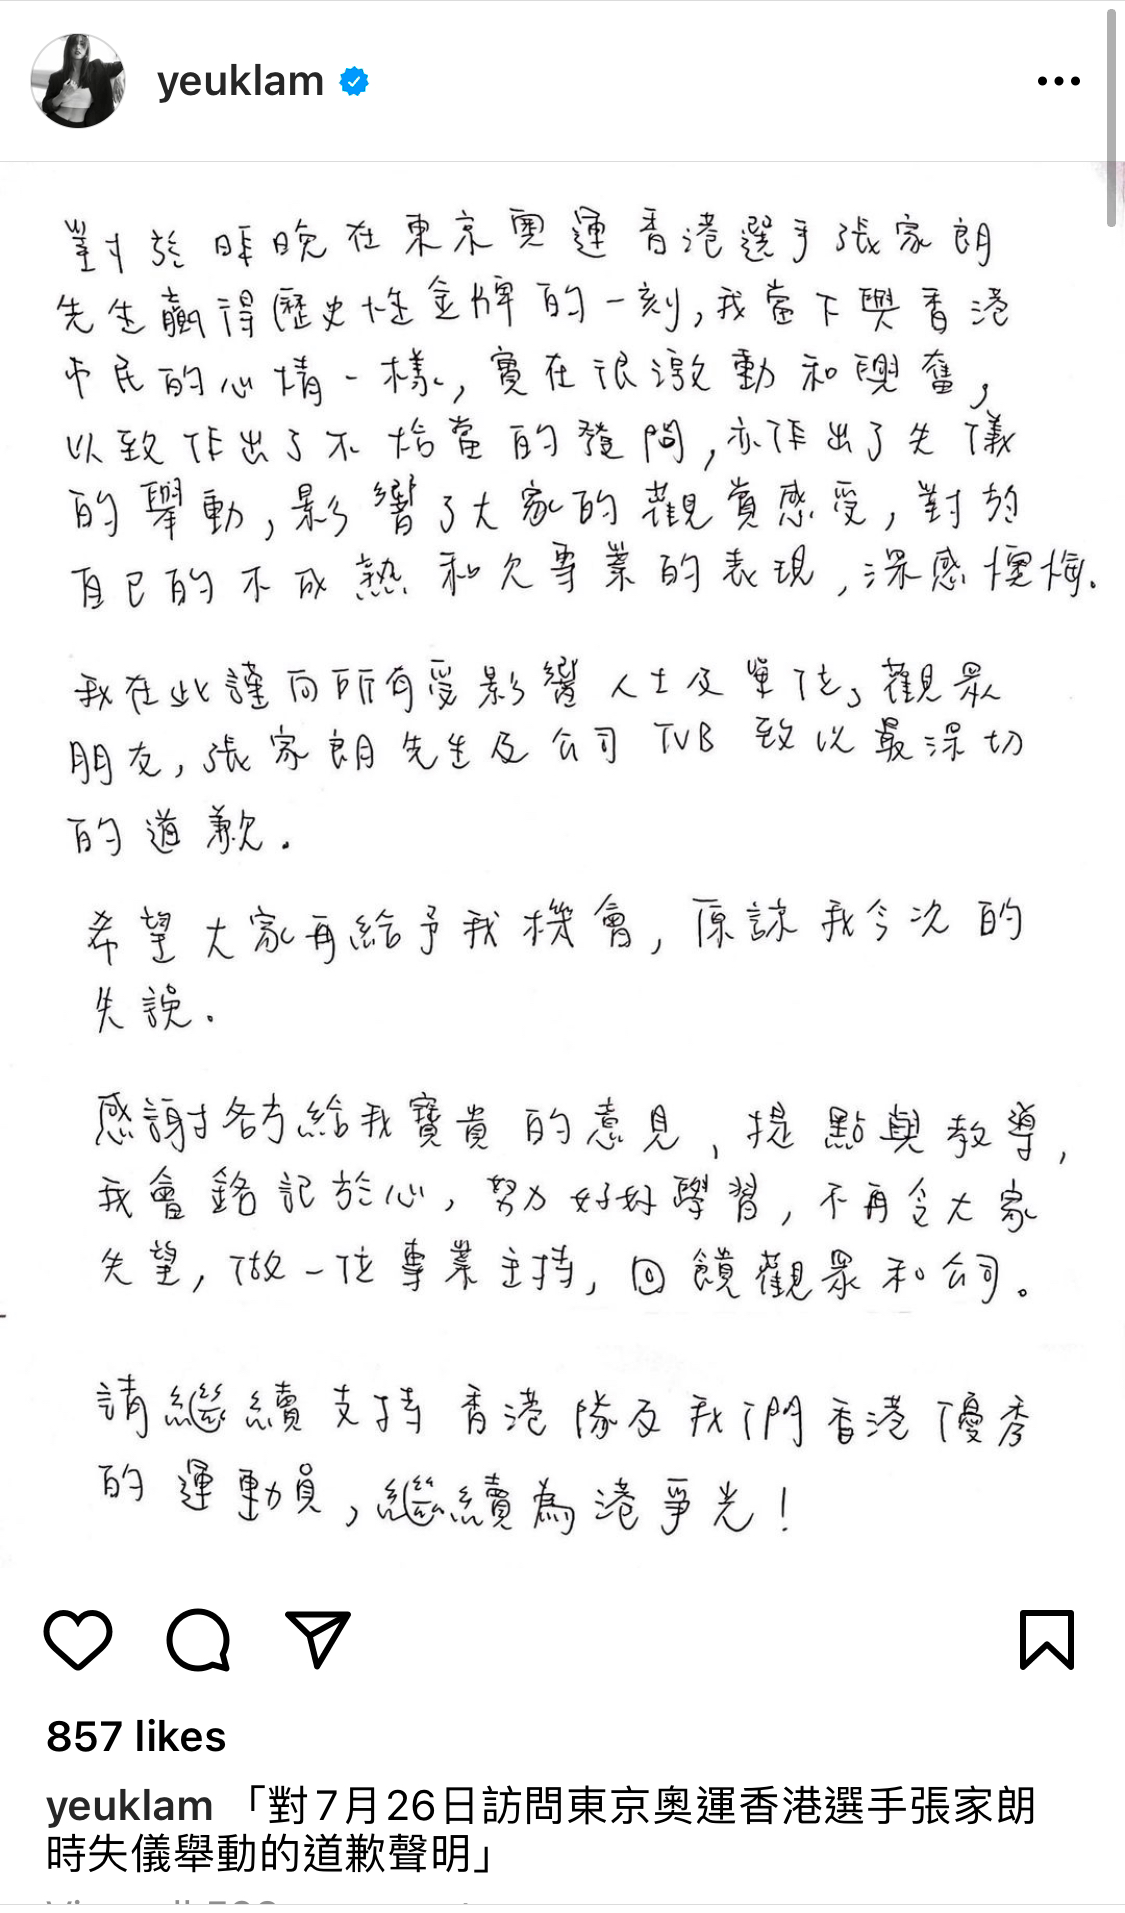 yeuklam
對於昨晚在東京奧運香港選手張家朗
先生贏得歷史性金牌的一刻,我當下與香港
市民的心情一樣,實在很激動和興奮,
以致作出了不恰當的發問,亦作出了失儀
的舉動,影響了大家的觀賞感受,對於
自己的不成熟和欠專業的表現,深感懊悔.
我在此謹向所有受影響人士及單位,觀眾
朋友,張家朗先生及公司TVB致以最深切
的道歉.
希望大家再給予我機會,原諒我今次的
失誤.
感謝各方給我寶貴的意見,提點與教導,
我會銘記於心,努力好好學習,不再令大家
失望,做一位專業主持,回饋觀眾和公司。
請繼續支持香港隊及我們香港優秀
的運動員,繼續為港爭光!
857 likes
yeuklam 「對7月26日訪問東京奧運香港選手張家朗
時失儀舉動的道歉聲明」